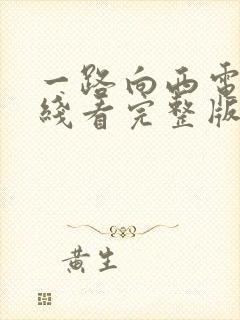 一路向西电
线看完整版
黄生